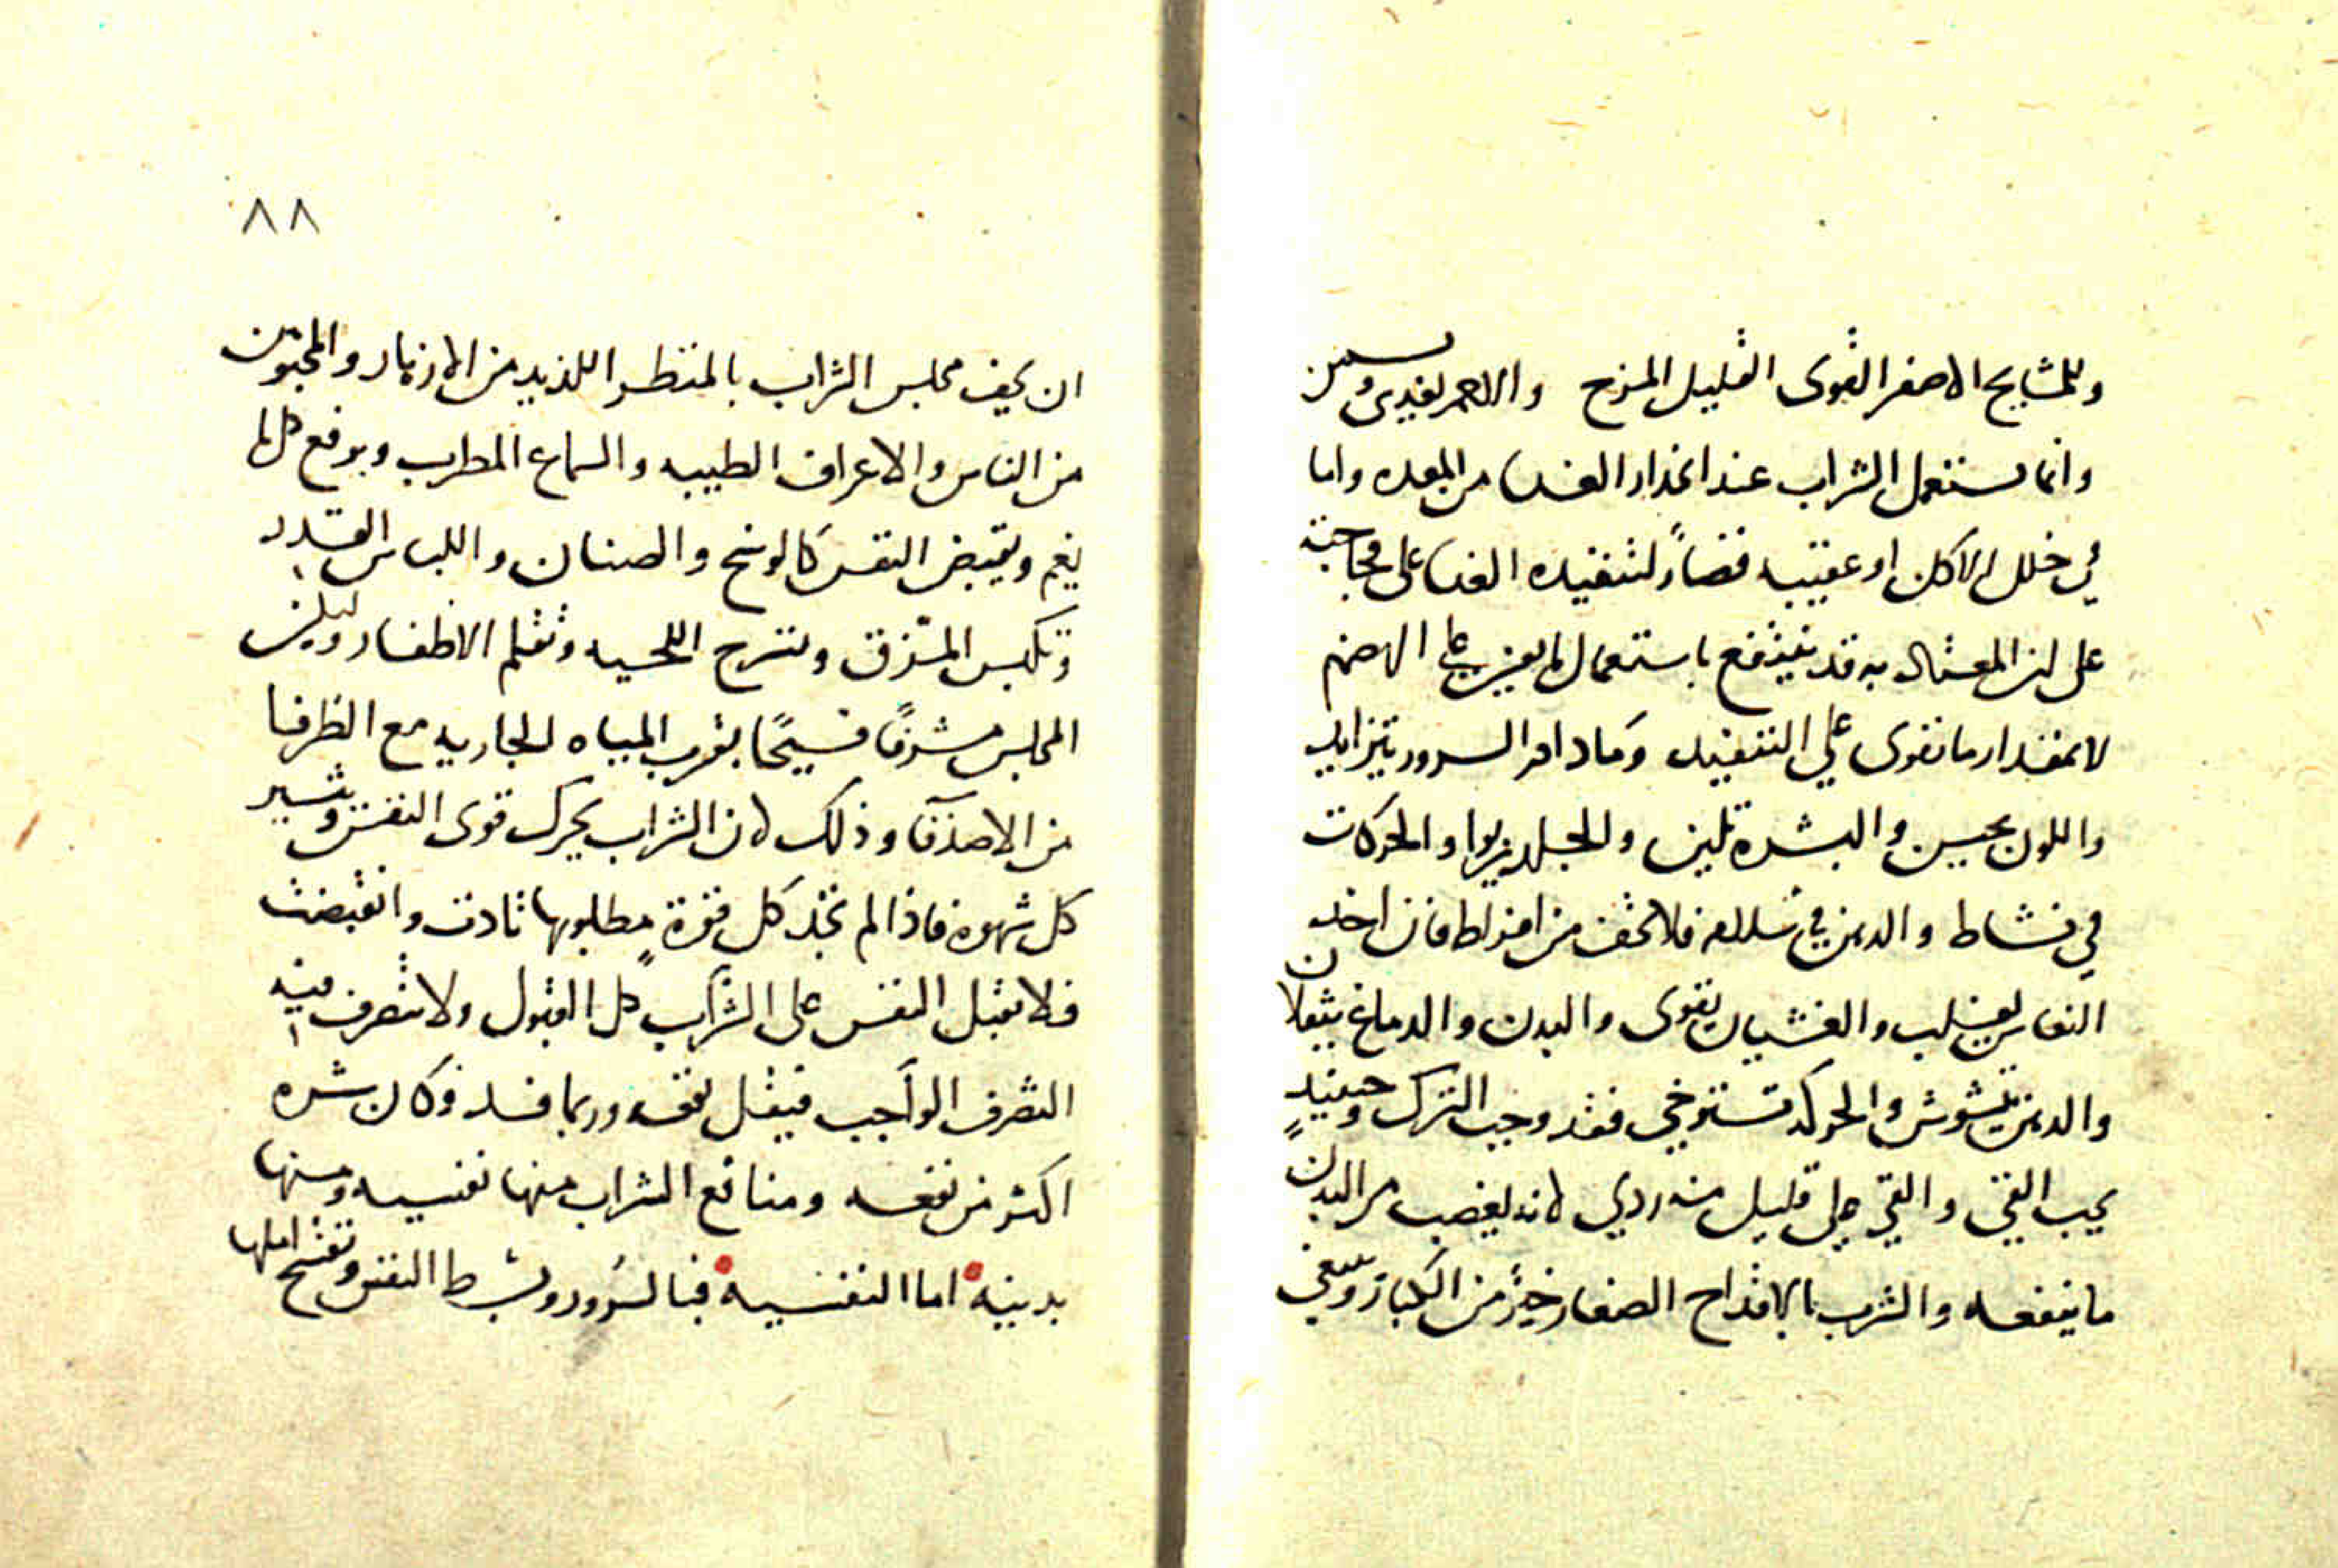 وللمشايخ الاصفر القوى القليل المزج والاحمر يغدى ويسمن
وانما يستعمل الشراب عند انحدار الغدا من المعده واما
في خلل الاكل او عقيبه فضار لتنفيده الغدا على فجاجته
على ان المعتاد به قد ينتفع باستعمال ما يعين على الهضم
لا بمقدار ما تقوى على التنفيد وما دام السرور يتزايد
واللون يحسن والبشرة تلين والجلد يربوا والحركات
في نشاط والدهن في سلامه فلا تخف من افراط فان اخد
النعاس يغلب والغشيان يقوى والبدن والدماغ يثقلان
والدهن يتشوش والحركه تسترخي فقد وجب الترك وحينيدٍ
يجب القي والقي على قليل منه ردي لانه يغصب من البدن
ما ينفعه والشرب بالاقداح الصغار خيرٌ من الكبار وينبغي
٨٨
ان يحف مجلس الشراب بالمنظر اللذيد من الازهار والمحبوبين
من الناس والاعراف الطيبه والسماع المطرب ويرفع كل ما
يغم ويقبض النفس كالوسخ والصنان واللباس القدر
وتلبس المشرق وتسرح اللحيه وتقلم الاظفار وليكن
المجلس مشرفًا فسيحًا بقرب المياه الجاريه مع الظرفا
من الاصدقا وذلك لان الشراب يحرك قوى النفس ويثير
كل شهوه فاذا لم تجد كل قوة مطلوبها تادت وانقبضت
فلا تقبل النفس على الشراب كل القبول ولا تتصرف فيه
التصرف الواجب فيقل نفعه وربما فسد فكان شره
اكثر من نفعه ومنافع الشراب منها نفسيه ومنها
بدنيه اما النفسيه فبالسرور وبسط النفس وتفسح املها